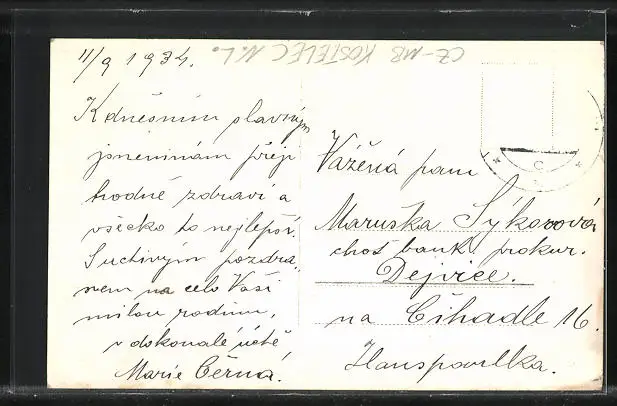 11/9 1934.
CZ-MB KOSTELEC N.L.
K dnešním slavným
jmeninám přeji
hodně zdraví a
všecko to nejlepší.
S uctivým pozdra
vem na celo Vaši
milou rodinu,
v dokonalé úctě
Marie Černá.
Vážená paní
Maruška Sýkorová
choť bank. prokur.
Dejvice.
na Čihadle 16.
Hanspaulka.
C